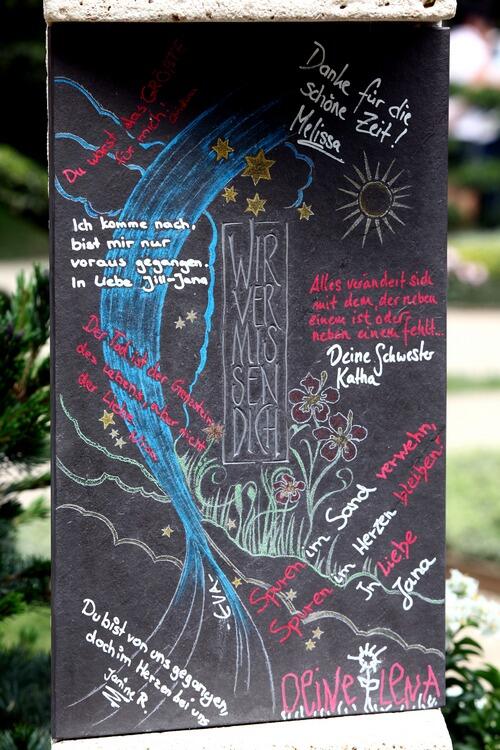 Danke für die
schöne Zeit!
Melissa
Du warst das GRÖßTE
für mich!
Ich komme nach,
bist mir nur
voraus gegangen.
In Liebe Jill-Jana
WIR
VER
MIS
SEN
DICH
Alles verändert sich
mit dem, der neben
einem ist oder
neben einem fehlt...
Deine Schwester
Katha
Der Tod ist der Grenzstein
des Lebens, aber nicht
der Liebe
Spuren im Sand verwehn,
Spuren im Herzen bleiben!
In Liebe
Jana
-EVA-
Du bist von uns gegangen,
doch im Herzen bei uns
Janine R.
DEINE LENA